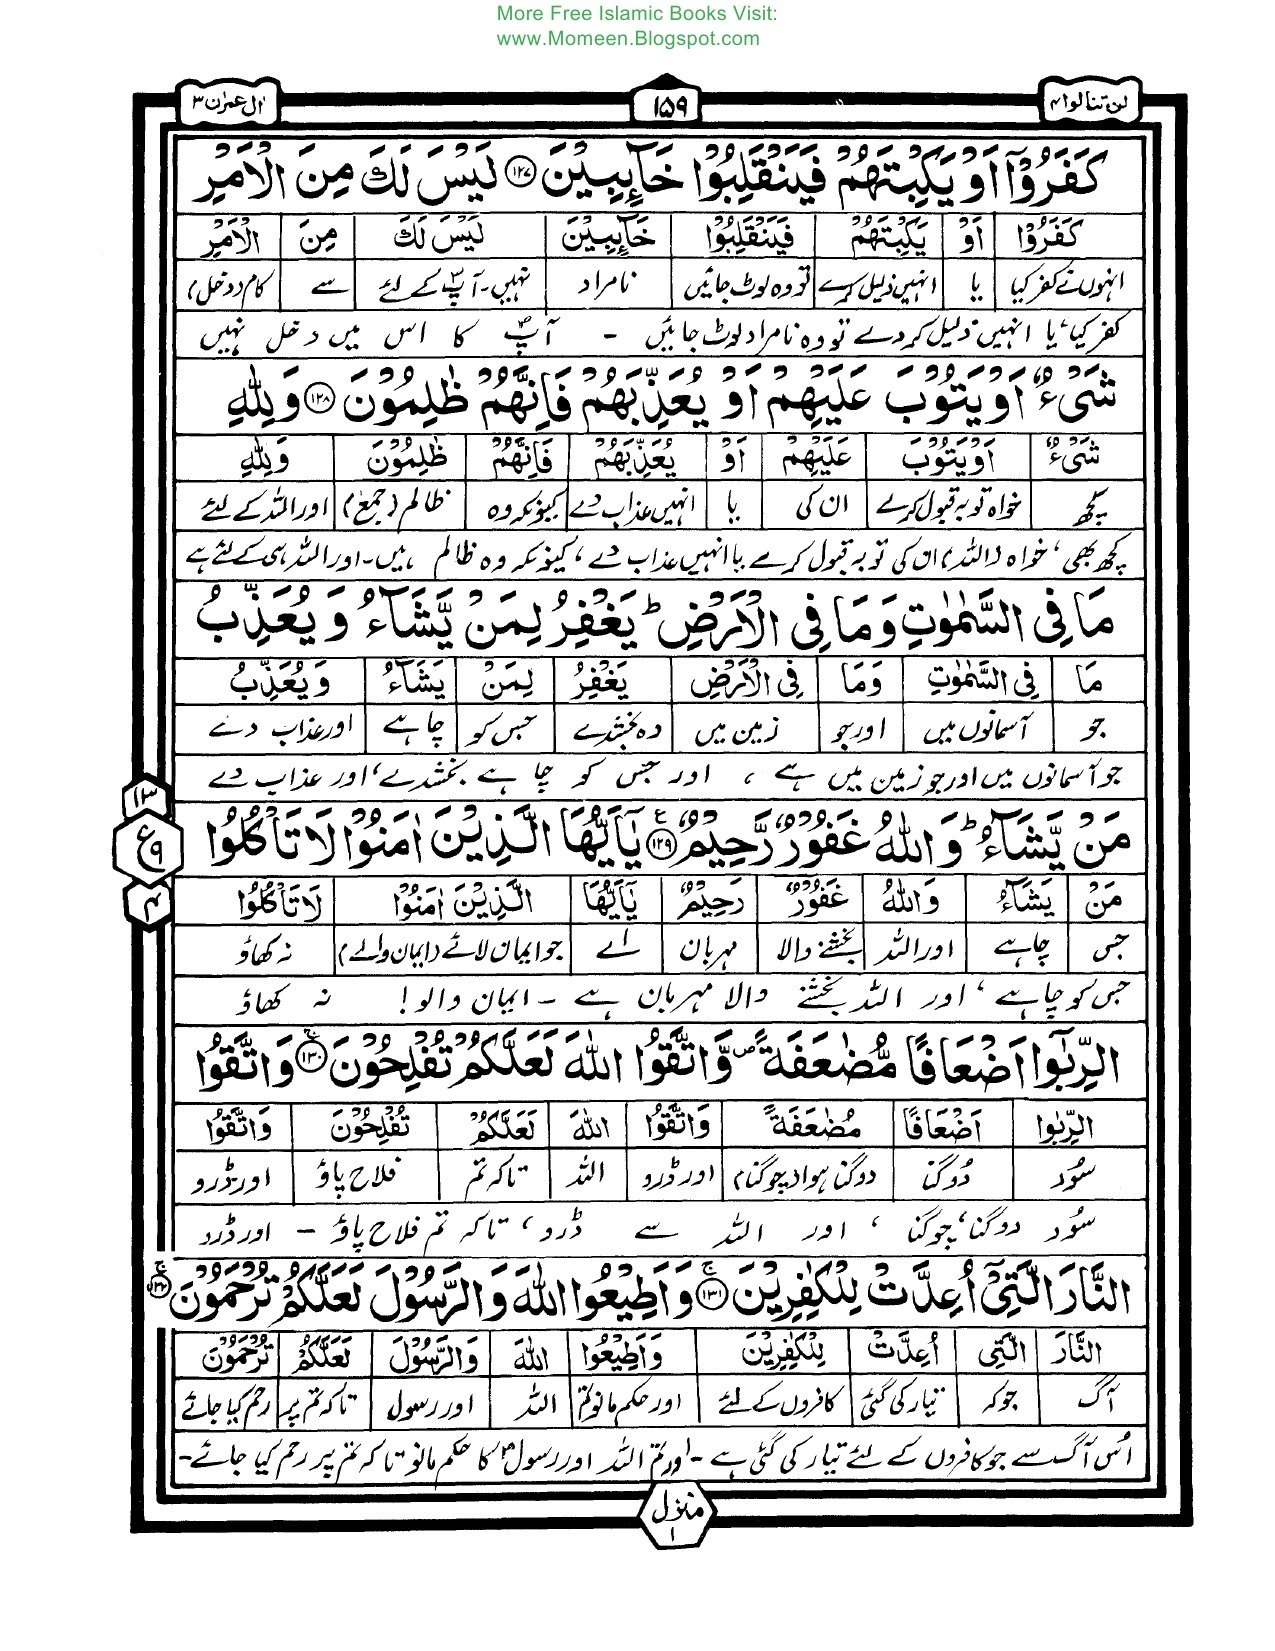 More Free Islamic Books Visit:
www.Momeen.Blogspot.com
لن تنالوا ۴
۱۵۹
اٰل عمرٰن ۳
كَفَرُوْٓا اَوْ يَكْبِتَهُمْ فَيَنْقَلِبُوْا خَآئِبِيْنَ ۱۲۷ لَيْسَ لَكَ مِنَ الْاَمْرِ
كَفَرُوْٓا اَوْ يَكْبِتَهُمْ فَيَنْقَلِبُوْا خَآئِبِيْنَ لَيْسَ لَكَ مِنَ الْاَمْرِ
انہوں نے کفر کیا یا انہیں ذلیل کرے تو وہ لوٹ جائیں نامراد نہیں۔ آپؐ کے لئے سے کام (دخل)
کفر کیا، یا انہیں ذلیل کر دے تو وہ نامراد لوٹ جائیں ۔ آپؐ کا اس میں دخل نہیں
شَيْءٌ اَوْ يَتُوْبَ عَلَيْهِمْ اَوْ يُعَذِّبَهُمْ فَاِنَّهُمْ ظٰلِمُوْنَ ۱۲۸ وَلِلّٰهِ
شَيْءٌ اَوْ يَتُوْبَ عَلَيْهِمْ اَوْ يُعَذِّبَهُمْ فَاِنَّهُمْ ظٰلِمُوْنَ وَلِلّٰهِ
کچھ خواہ توبہ قبول کرے ان کی یا انہیں عذاب دے کیونکہ وہ ظالم (جمع) اور اللہ کے لئے
کچھ بھی، خواہ (اللہ) ان کی توبہ قبول کرے یا انہیں عذاب دے، کیونکہ وہ ظالم ہیں۔ اور اللہ ہی کے لئے ہے
مَا فِى السَّمٰوٰتِ وَمَا فِى الْاَرْضِ ؕ يَغْفِرُ لِمَنْ يَّشَآءُ وَ يُعَذِّبُ
مَا فِى السَّمٰوٰتِ وَمَا فِى الْاَرْضِ يَغْفِرُ لِمَنْ يَّشَآءُ وَ يُعَذِّبُ
جو آسمانوں میں اور جو زمین میں وہ بخشدے جس کو چاہے اور عذاب دے
جو آسمانوں میں اور جو زمین میں ہے ، اور جس کو چاہے بخشدے، اور عذاب دے
۱۳
ع
۹
۴
مَنْ يَّشَآءُ ؕ وَاللّٰهُ غَفُوْرٌ رَّحِيْمٌ ۱۲۹ يٰٓاَيُّهَا الَّذِيْنَ اٰمَنُوْا لَا تَاْكُلُوا
مَنْ يَّشَآءُ وَاللّٰهُ غَفُوْرٌ رَّحِيْمٌ يٰٓاَيُّهَا الَّذِيْنَ اٰمَنُوْا لَا تَاْكُلُوا
جس چاہے اور اللہ بخشنے والا مہربان اے جو ایمان لائے (ایمان والے) نہ کھاؤ
جس کو چاہے ، اور اللہ بخشنے والا مہربان ہے ۔ ایمان والو! نہ کھاؤ
الرِّبٰٓوا اَضْعَافًا مُّضٰعَفَةً ۪ وَّاتَّقُوا اللّٰهَ لَعَلَّكُمْ تُفْلِحُوْنَ ۱۳۰ وَاتَّقُوا
الرِّبٰٓوا اَضْعَافًا مُّضٰعَفَةً وَّاتَّقُوا اللّٰهَ لَعَلَّكُمْ تُفْلِحُوْنَ وَاتَّقُوا
سُود دُوگنا دوگنا ہوا (چوگنا) اور ڈرو اللہ تاکہ تم فلاح پاؤ اور ڈرو
سُود دوگنا، چوگنا ، اور اللہ سے ڈرو ، تاکہ تم فلاح پاؤ ۔ اور ڈرو
النَّارَ الَّتِىْٓ اُعِدَّتْ لِلْكٰفِرِيْنَ ۱۳۱ وَاَطِيْعُوا اللّٰهَ وَالرَّسُوْلَ لَعَلَّكُمْ تُرْحَمُوْنَ ۱۳۲
النَّارَ الَّتِىْ اُعِدَّتْ لِلْكٰفِرِيْنَ وَاَطِيْعُوا اللّٰهَ وَالرَّسُوْلَ لَعَلَّكُمْ تُرْحَمُوْنَ
آگ جو کہ تیار کی گئی کافروں کے لئے اور حکم مانو تم اللہ اور رسول تاکہ تم پر رحم کیا جائے
اُس آگ سے جو کافروں کے لئے تیار کی گئی ہے ۔ اور تم اللہ اور رسولؐ کا حکم مانو تاکہ تم پر رحم کیا جائے۔
منزل ۱